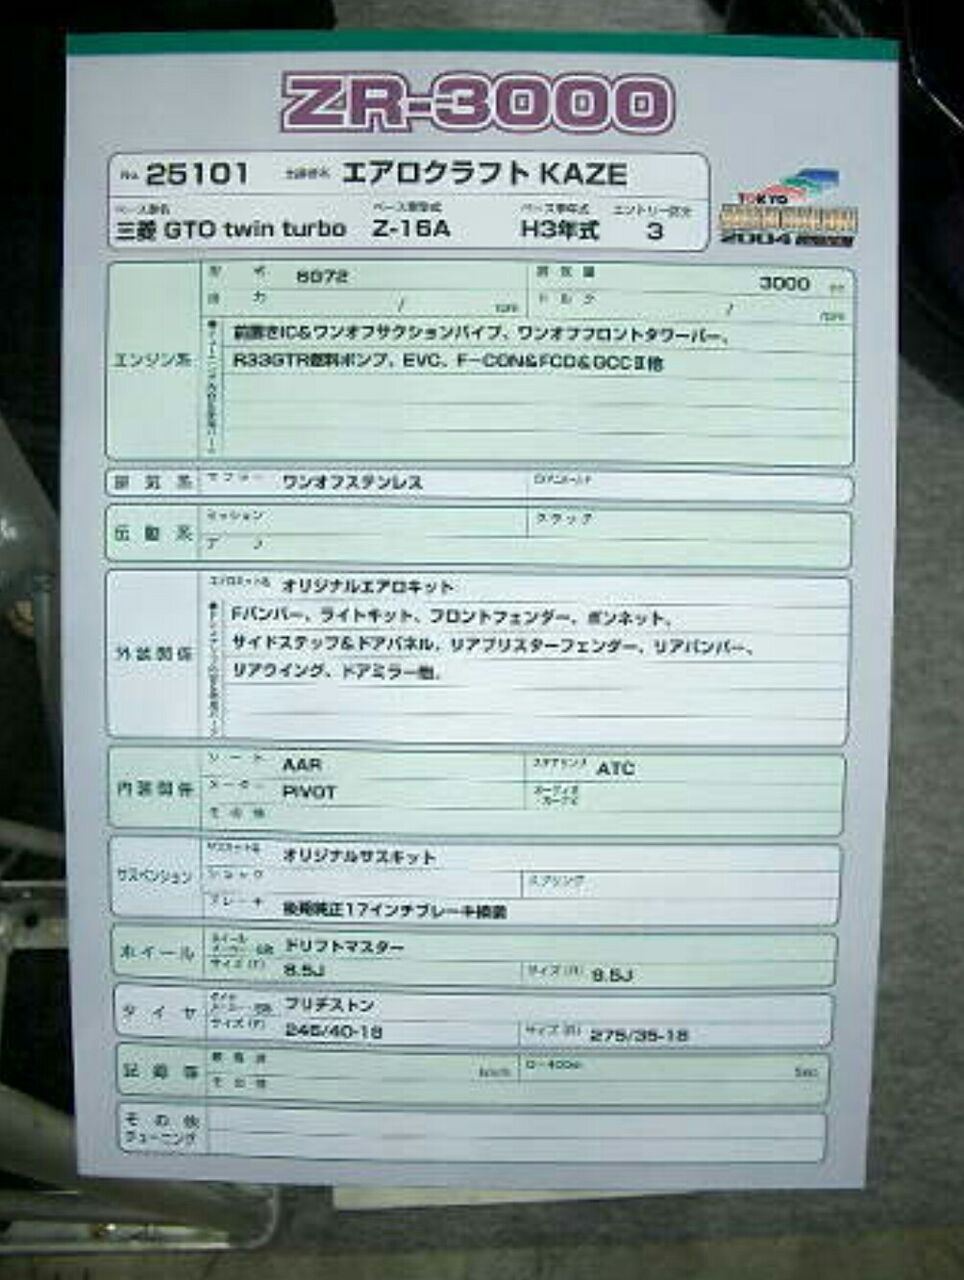 ZR-3000
No. 25101 出展者名 エアロクラフト KAZE
ベース車名 ベース車型式 ベース車年式 エントリー区分
三菱 GTO twin turbo Z-16A H3年式 3
TOKYO
2004
型 式 6G72 排 気 量 3000 cc
出 力 / rpm トルク / rpm
エンジン系
前置きIC&ワンオフサクションパイプ、ワンオフフロントタワーバー、
R33GTR燃料ポンプ、EVC、F-CON&FCD&GCCⅡ他
排 気 系 マフラー ワンオフステンレス
伝 動 系 ミッション クラッチ
デ フ
エアロキット名 オリジナルエアロキット
外装関係
Fバンパー、ライトキット、フロントフェンダー、ボンネット、
サイドステップ&ドアパネル、リアブリスターフェンダー、リアバンパー、
リアウイング、ドアミラー他、
内装関係 シート AAR ステアリング ATC
メーター PIVOT オーディオ カーナビ
その他
サスペンション サスキット名 オリジナルサスキット
ショック スプリング
ブレーキ 後期純正17インチブレーキ換装
ホイール ドリフトマスター
サイズ(F) 8.5J サイズ(R) 9.5J
タイヤ ブリヂストン
サイズ(F) 245/40-18 サイズ(R) 275/35-18
記録等 最高速 km/h 0-400m Sec
その他
その他
チューニング